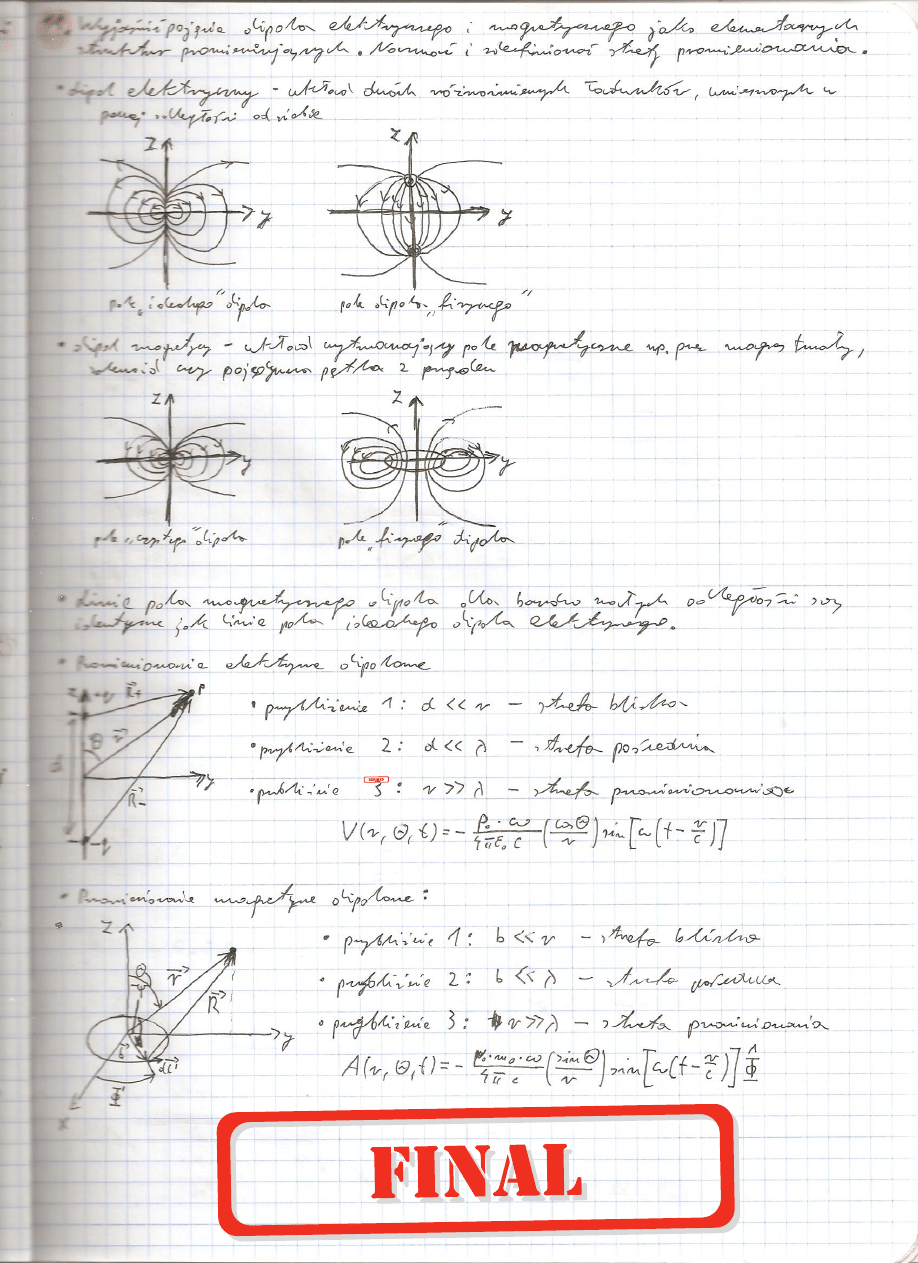 Wyjaśnić pojęcie dipola elektrycznego i magnetycznego jako elementarnych
struktur promieniujących. Narysować i zdefiniować strefy promieniowania.
• dipol elektryczny – układ dwóch różnoimiennych ładunków, umieszczonych w
pewnej odległości od siebie
Z Z
y y
pole „idealnego” dipola pole dipola „fizycznego”
• dipol magnetyczny – układ wytwarzający pole magnetyczne np. przez magnes trwały,
solenoid czy pojedyncza pętla z prądem
Z Z
y y
pole „czystego” dipola pole „fizycznego” dipola
• Linie pola magnetycznego dipola dla bardzo małych odległości są
identyczne jak linie pola idealnego dipola elektrycznego.
• Promieniowanie elektryczne dipolowe
z +q R₊ P
θ r
d y
R₋
-q
• przybliżenie 1: d << r – strefa bliska
• przybliżenie 2: d << λ – strefa pośrednia
• przybliżenie 3: r >> λ – strefa promieniowania
V(r, Θ, t) = - p₀·ω/4πε₀c (cosΘ/r) sin[ω(t - r/c)]
• Promieniowanie magnetyczne dipolowe:
Z
Θ r
R
y
b dl'
Φ'
X
• przybliżenie 1: b << r – strefa bliska
• przybliżenie 2: b << λ – strefa pośrednia
• przybliżenie 3: r >> λ – strefa promieniowania
A(r, Θ, t) = - μ₀·m₀·ω/4πc (sinΘ/r) sin[ω(t - r/c)] Φ̂
FINAL